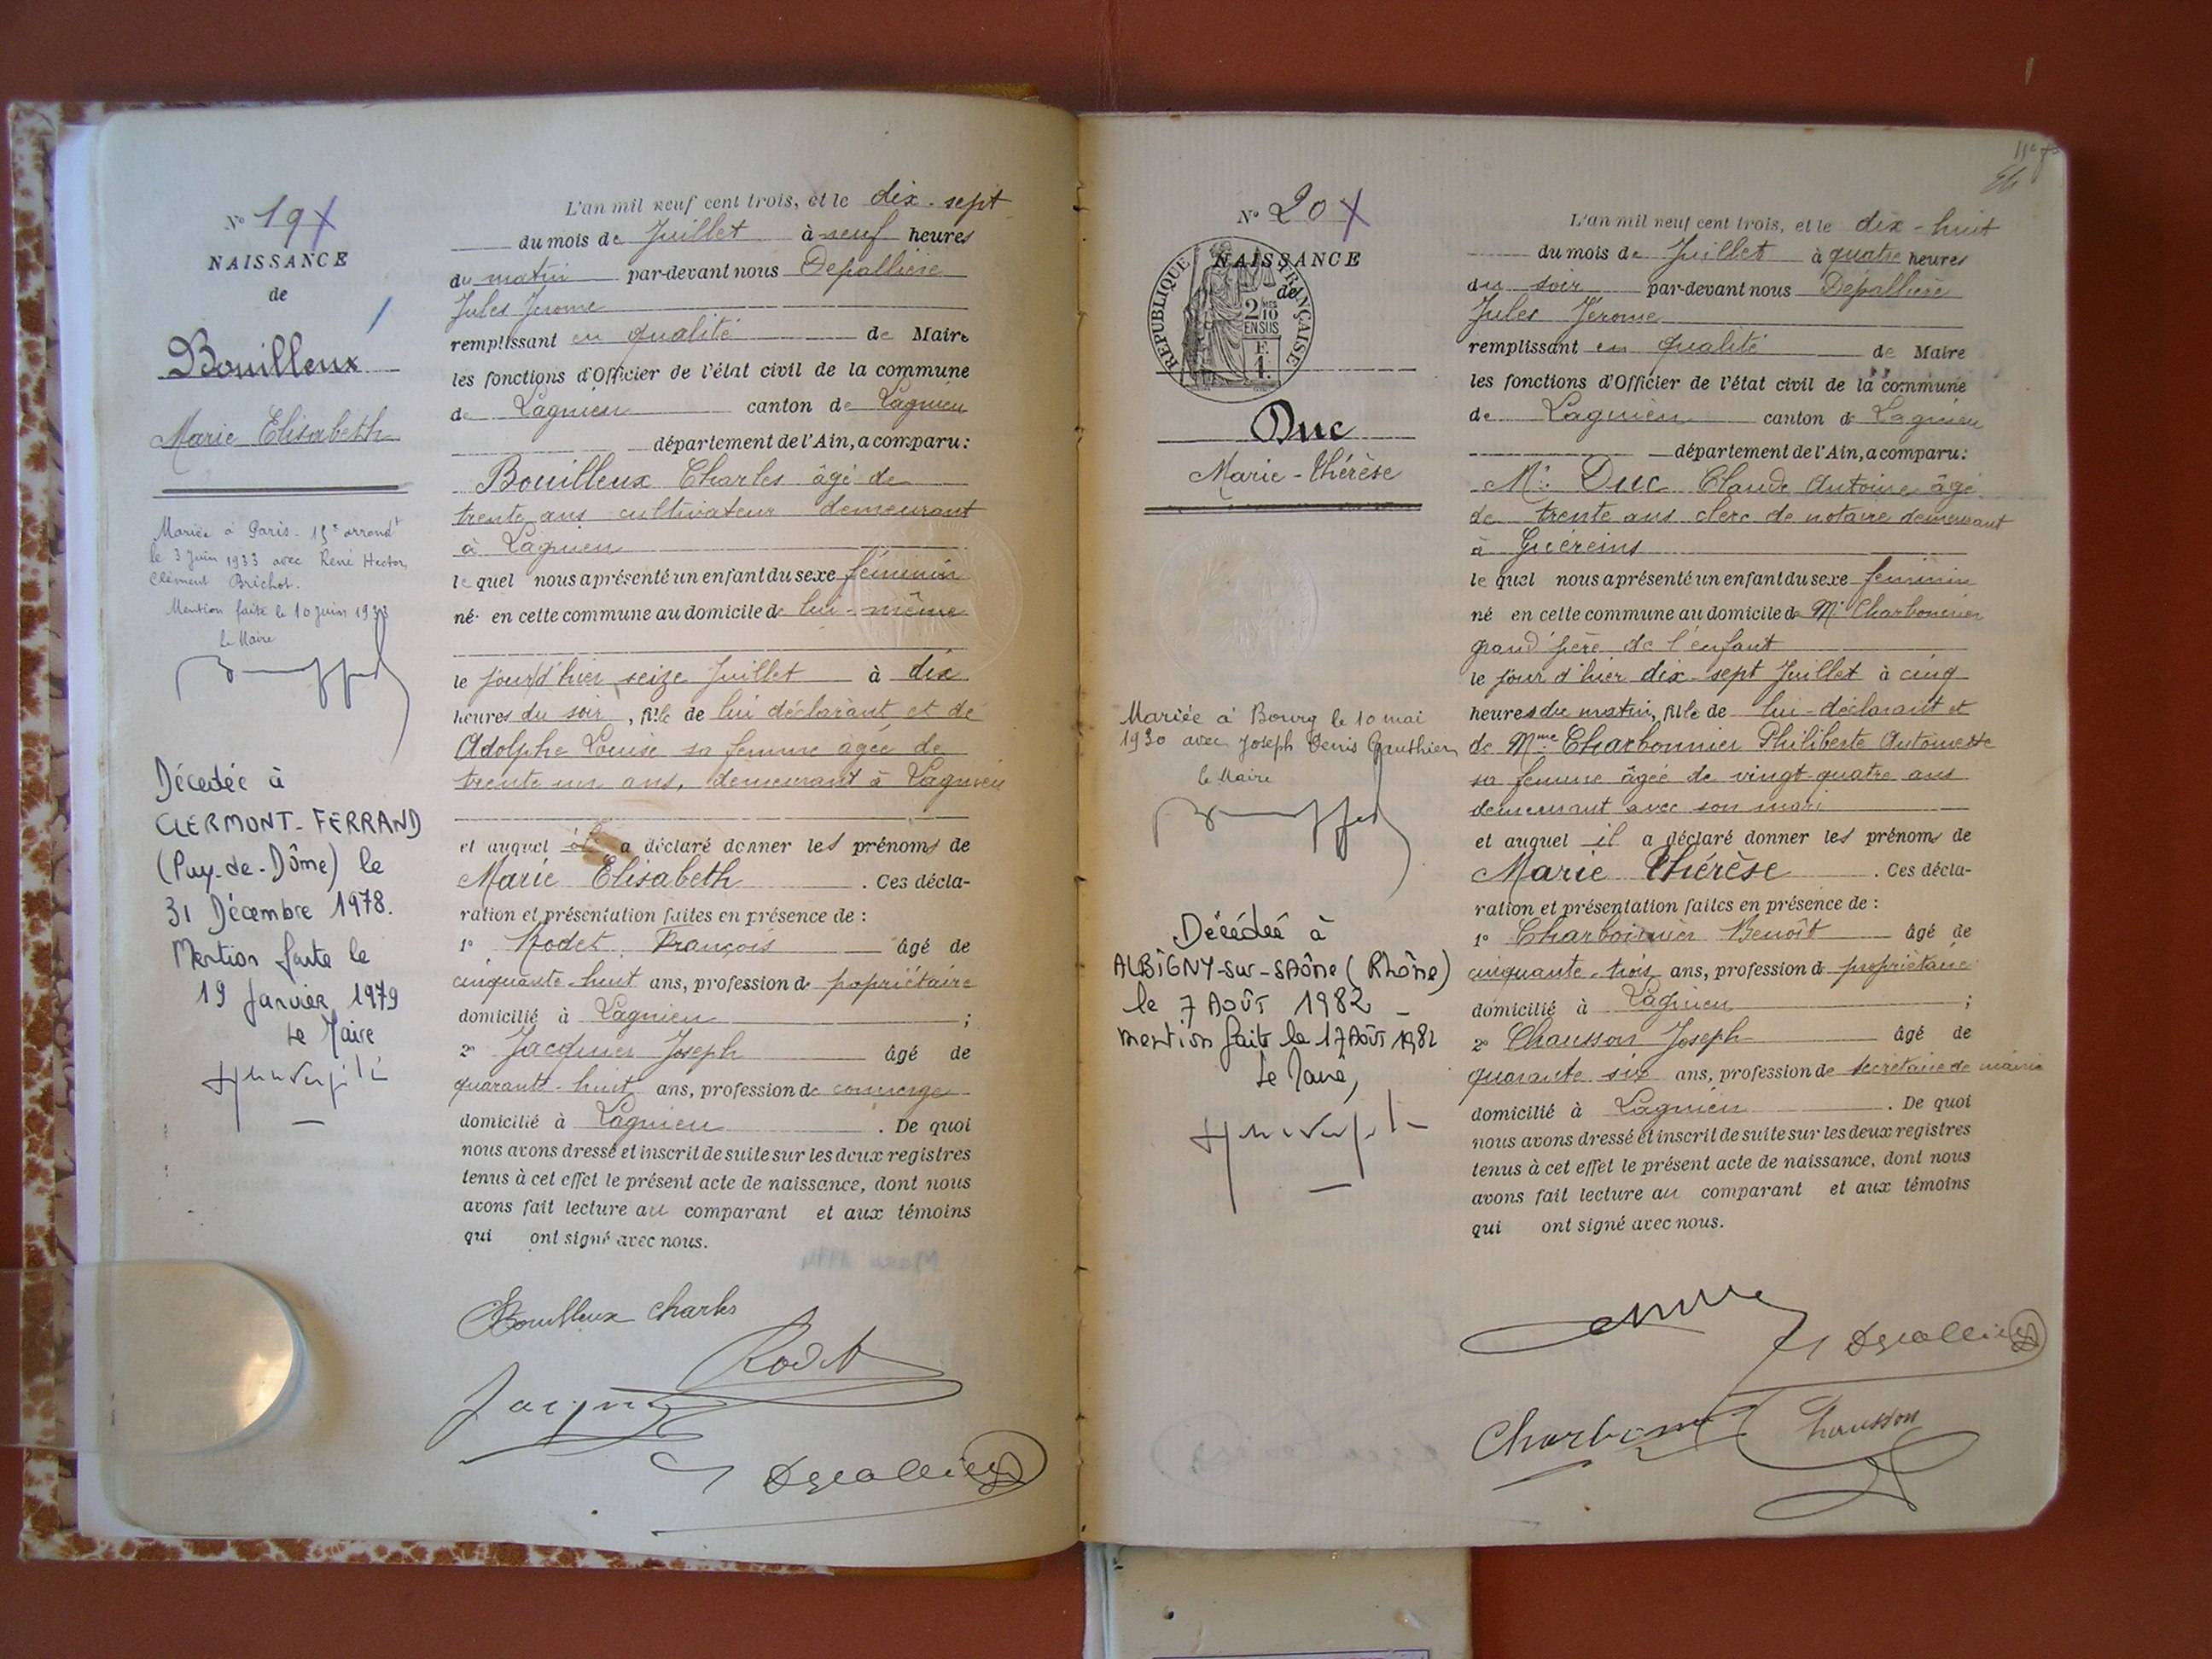 N° 19
NAISSANCE
de
Bouilleux
Marie Elisabeth
Mariée à Paris - 15e arrondt
le 3 Juin 1933 avec René Hector
Clément Brichot.
Mention faite le 10 juin 1933
le Maire
Décedée à
CLERMONT-FERRAND
(Puy-de-Dôme) le
31 Décembre 1978.
Mention faite le
19 Janvier 1979
Le Maire
L'an mil neuf cent trois, et le dix-sept
du mois de Juillet à neuf heures
du matin par-devant nous Depallière
Jules Jerome
remplissant en qualité de Maire
les fonctions d'Officier de l'état civil de la commune
de Lagnieu canton de Lagnieu
département de l'Ain, a comparu :
Bouilleux Charles âgé de
trente ans cultivateur demeurant
à Lagnieu
lequel nous a présenté un enfant du sexe féminin
né en cette commune au domicile de lui-même
le jour d'hier seize Juillet à dix
heures du soir, fille de lui déclarant et de
Adolphe Louise sa femme âgée de
trente un ans, demeurant à Lagnieu
et auquel il a déclaré donner les prénoms de
Marie Elisabeth. Ces décla-
ration et présentation faites en présence de :
1° Rodet François âgé de
cinquante-huit ans, profession de propriétaire
domicilié à Lagnieu ;
2° Jacquier Joseph âgé de
quarante-huit ans, profession de concierge
domicilié à Lagnieu. De quoi
nous avons dressé et inscrit de suite sur les deux registres
tenus à cet effet le présent acte de naissance, dont nous
avons fait lecture au comparant et aux témoins
qui ont signé avec nous.
Bouilleux Charles
Rodet
N° 20
NAISSANCE
de
RÉPUBLIQUE FRANÇAISE
2/10 EN SUS
F. 1.
Duc
Marie-Thérèse
Mariée à Bourg le 10 mai
1930 avec Joseph Denis Gauthier
le Maire
Décédée à
ALBIGNY-sur-SAône (Rhône)
le 7 Août 1982
mention faite le 17 Août 1982
Le Maire,
L'an mil neuf cent trois, et le dix-huit
du mois de Juillet à quatre heures
du soir par-devant nous Depallière
Jules Jérome
remplissant en qualité de Maire
les fonctions d'Officier de l'état civil de la commune
de Lagnieu canton de Lagnieu
département de l'Ain, a comparu :
Mr. Duc Claude Antoine âgé
de trente ans clerc de notaire demeurant
à Guéreins
lequel nous a présenté un enfant du sexe feminin
né en cette commune au domicile de Mr Charbonnier
grand'père de l'enfant
le jour d'hier dix-sept Juillet à cinq
heures du matin, fille de lui-déclarant et
de Mme Charbonnier Philiberte Antoinette
sa femme âgée de vingt-quatre ans
demeurant avec son mari
et auquel il a déclaré donner les prénoms de
Marie Thérèse. Ces décla-
ration et présentation faites en présence de :
1° Charbonnier Benoît âgé de
cinquante-trois ans, profession de propriétaire
domicilié à Lagnieu ;
2° Chausson Joseph âgé de
quarante six ans, profession de secrétaire de mairie
domicilié à Lagnieu. De quoi
nous avons dressé et inscrit de suite sur les deux registres
tenus à cet effet le présent acte de naissance, dont nous
avons fait lecture au comparant et aux témoins
qui ont signé avec nous.
Chausson